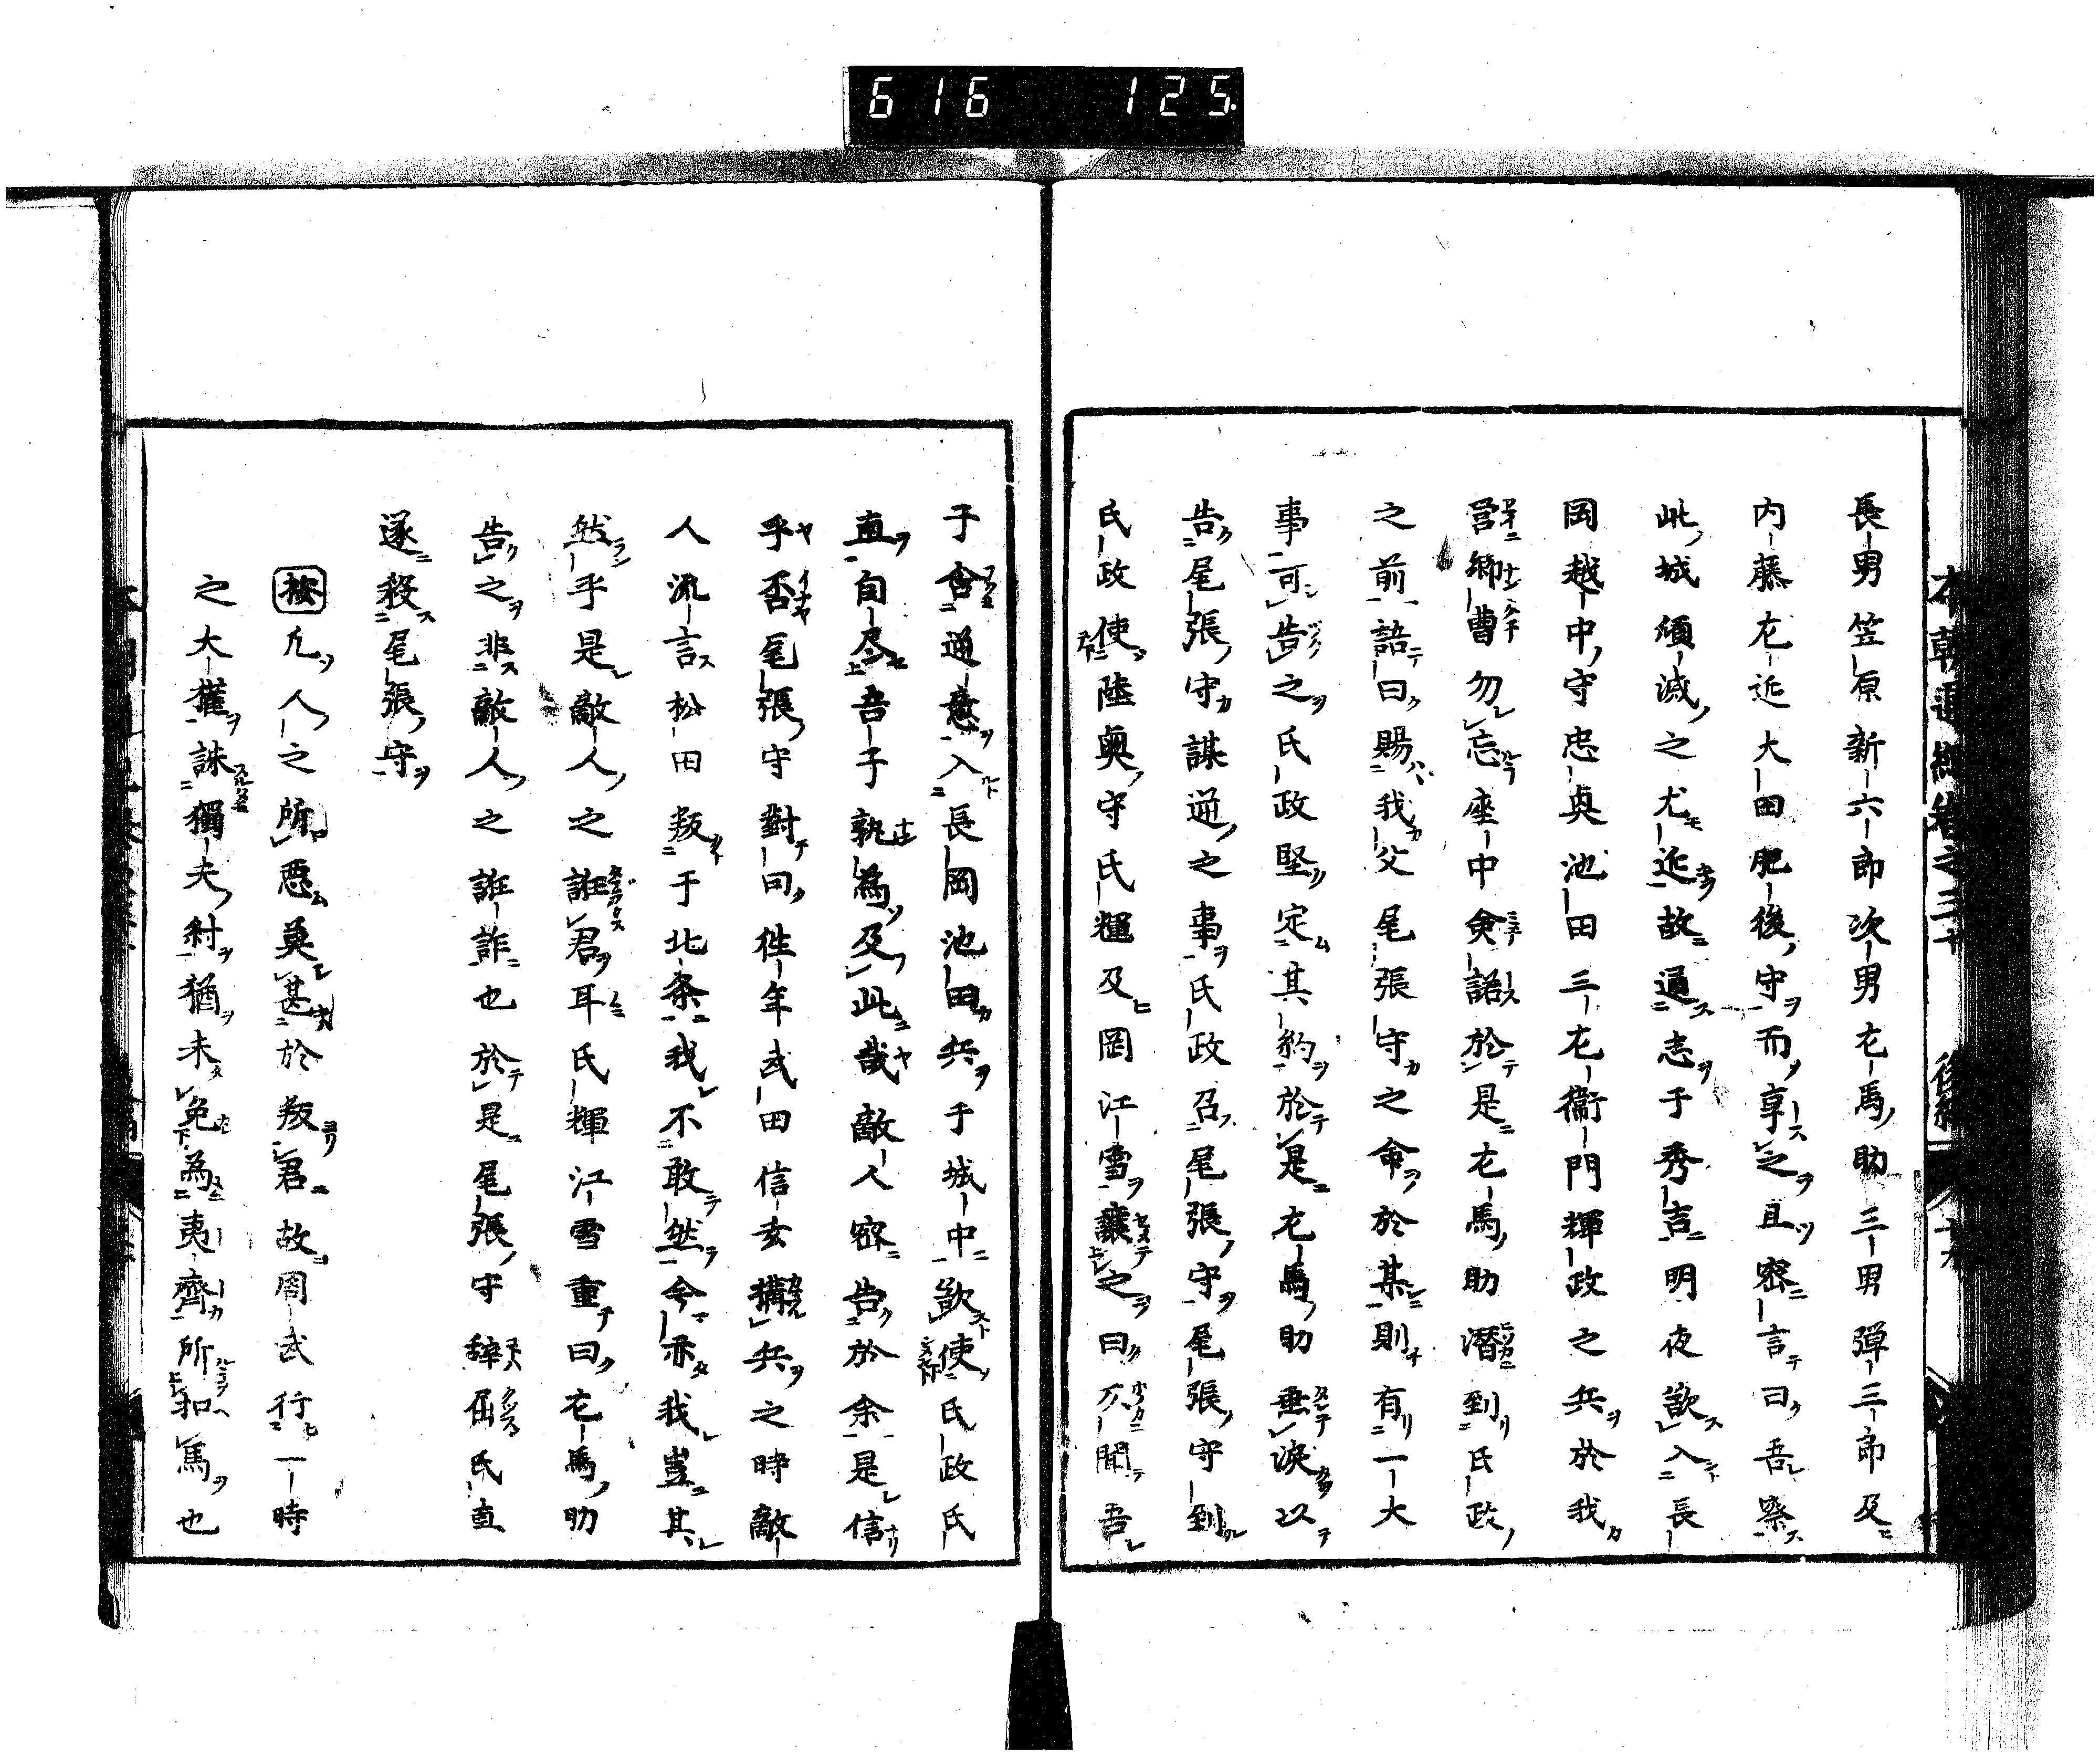 616 125
長男笠原新六郎次男左馬助三男弾三郎及
内藤左近大田肥後守而享之且密言曰吾察
此城傾滅之尤近故通志于秀吉明夜欲入長
岡越中守忠奥池田三左衞門輝政之兵於我
営郷曹勿忘座中僉諾於是左馬助潜到氏政
之前語曰賜我父尾張守之命於某則有一大
事可告之氏政堅定其約於是左馬助垂涙以
告尾張守謀逆之事氏政召尾張守尾張守到
氏政使陸奥守氏輝及岡江雪讓之曰仄聞吾
子含逆意入長岡池田兵于城中欲使氏政氏
直自尽吾子孰為及此哉敵人密告於余是信
乎否尾張守對曰往年武田信玄搆兵之時敵
人流言松田叛于北条我不敢然今亦我豈其
然乎是敵人之誑君耳氏輝江雪重曰左馬助
告之非敵人之誑詐也於是尾張守辞屈氏直
遂殺尾張守
按凢人之所惡莫甚於叛君故周武行一時
之大權誅獨夫紂猶未免為夷齊所扣馬也